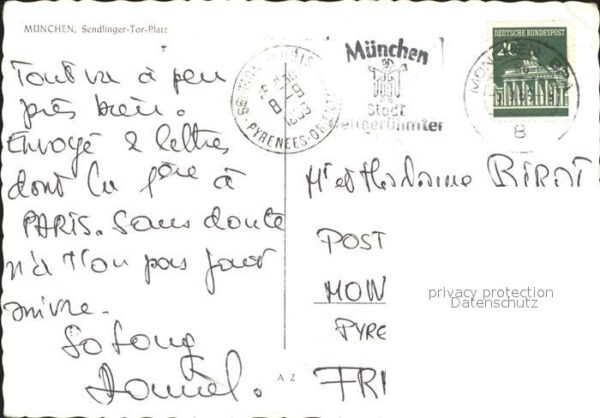 MÜNCHEN, Sendlinger-Tor-Platz
Tout va à peu
près bien.
Envoyé 2 lettres
dont la 1ère à
PARIS. Sans doute
n'a t'on pas fait
suivre.
So long
Daniel.
A Z
66 PYRENEES-OR
München
Stadt
DEUTSCHE BUNDESPOST
MÜNCHEN
8
Mr et Madame BIROT
POST
MON
PYRE
FR
privacy protection
Datenschutz